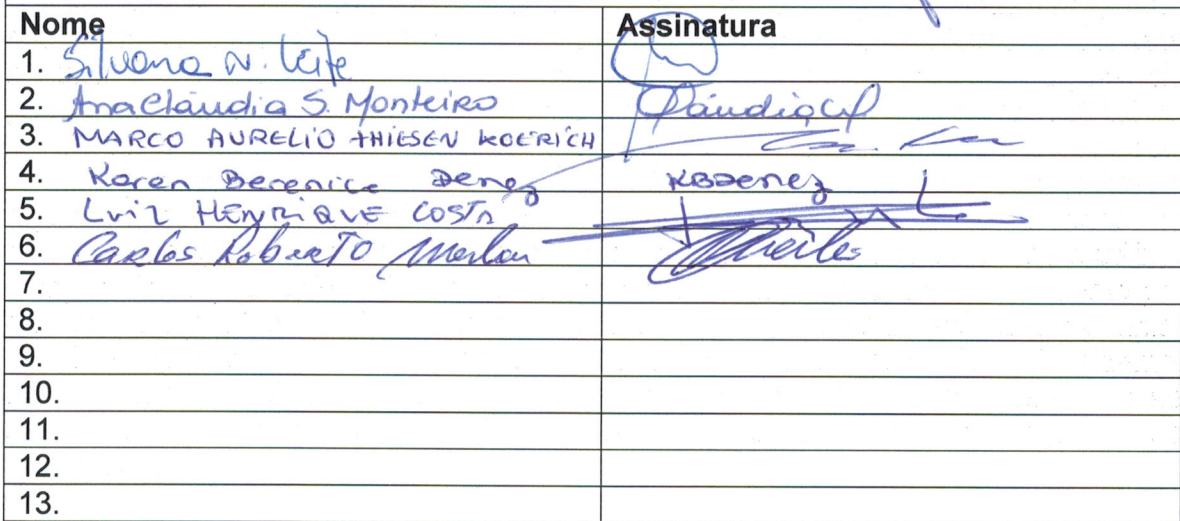 Nome Assinatura
1. Silvana N. Leite
2. Ana Claudia S. Monteiro
3. MARCO AURELIO THIESEN KOERICH
4. Karen Berenice Denez KBDenez
5. Luiz HENRIQUE COSTA
6. Carlos Roberto
7.
8.
9.
10.
11.
12.
13.